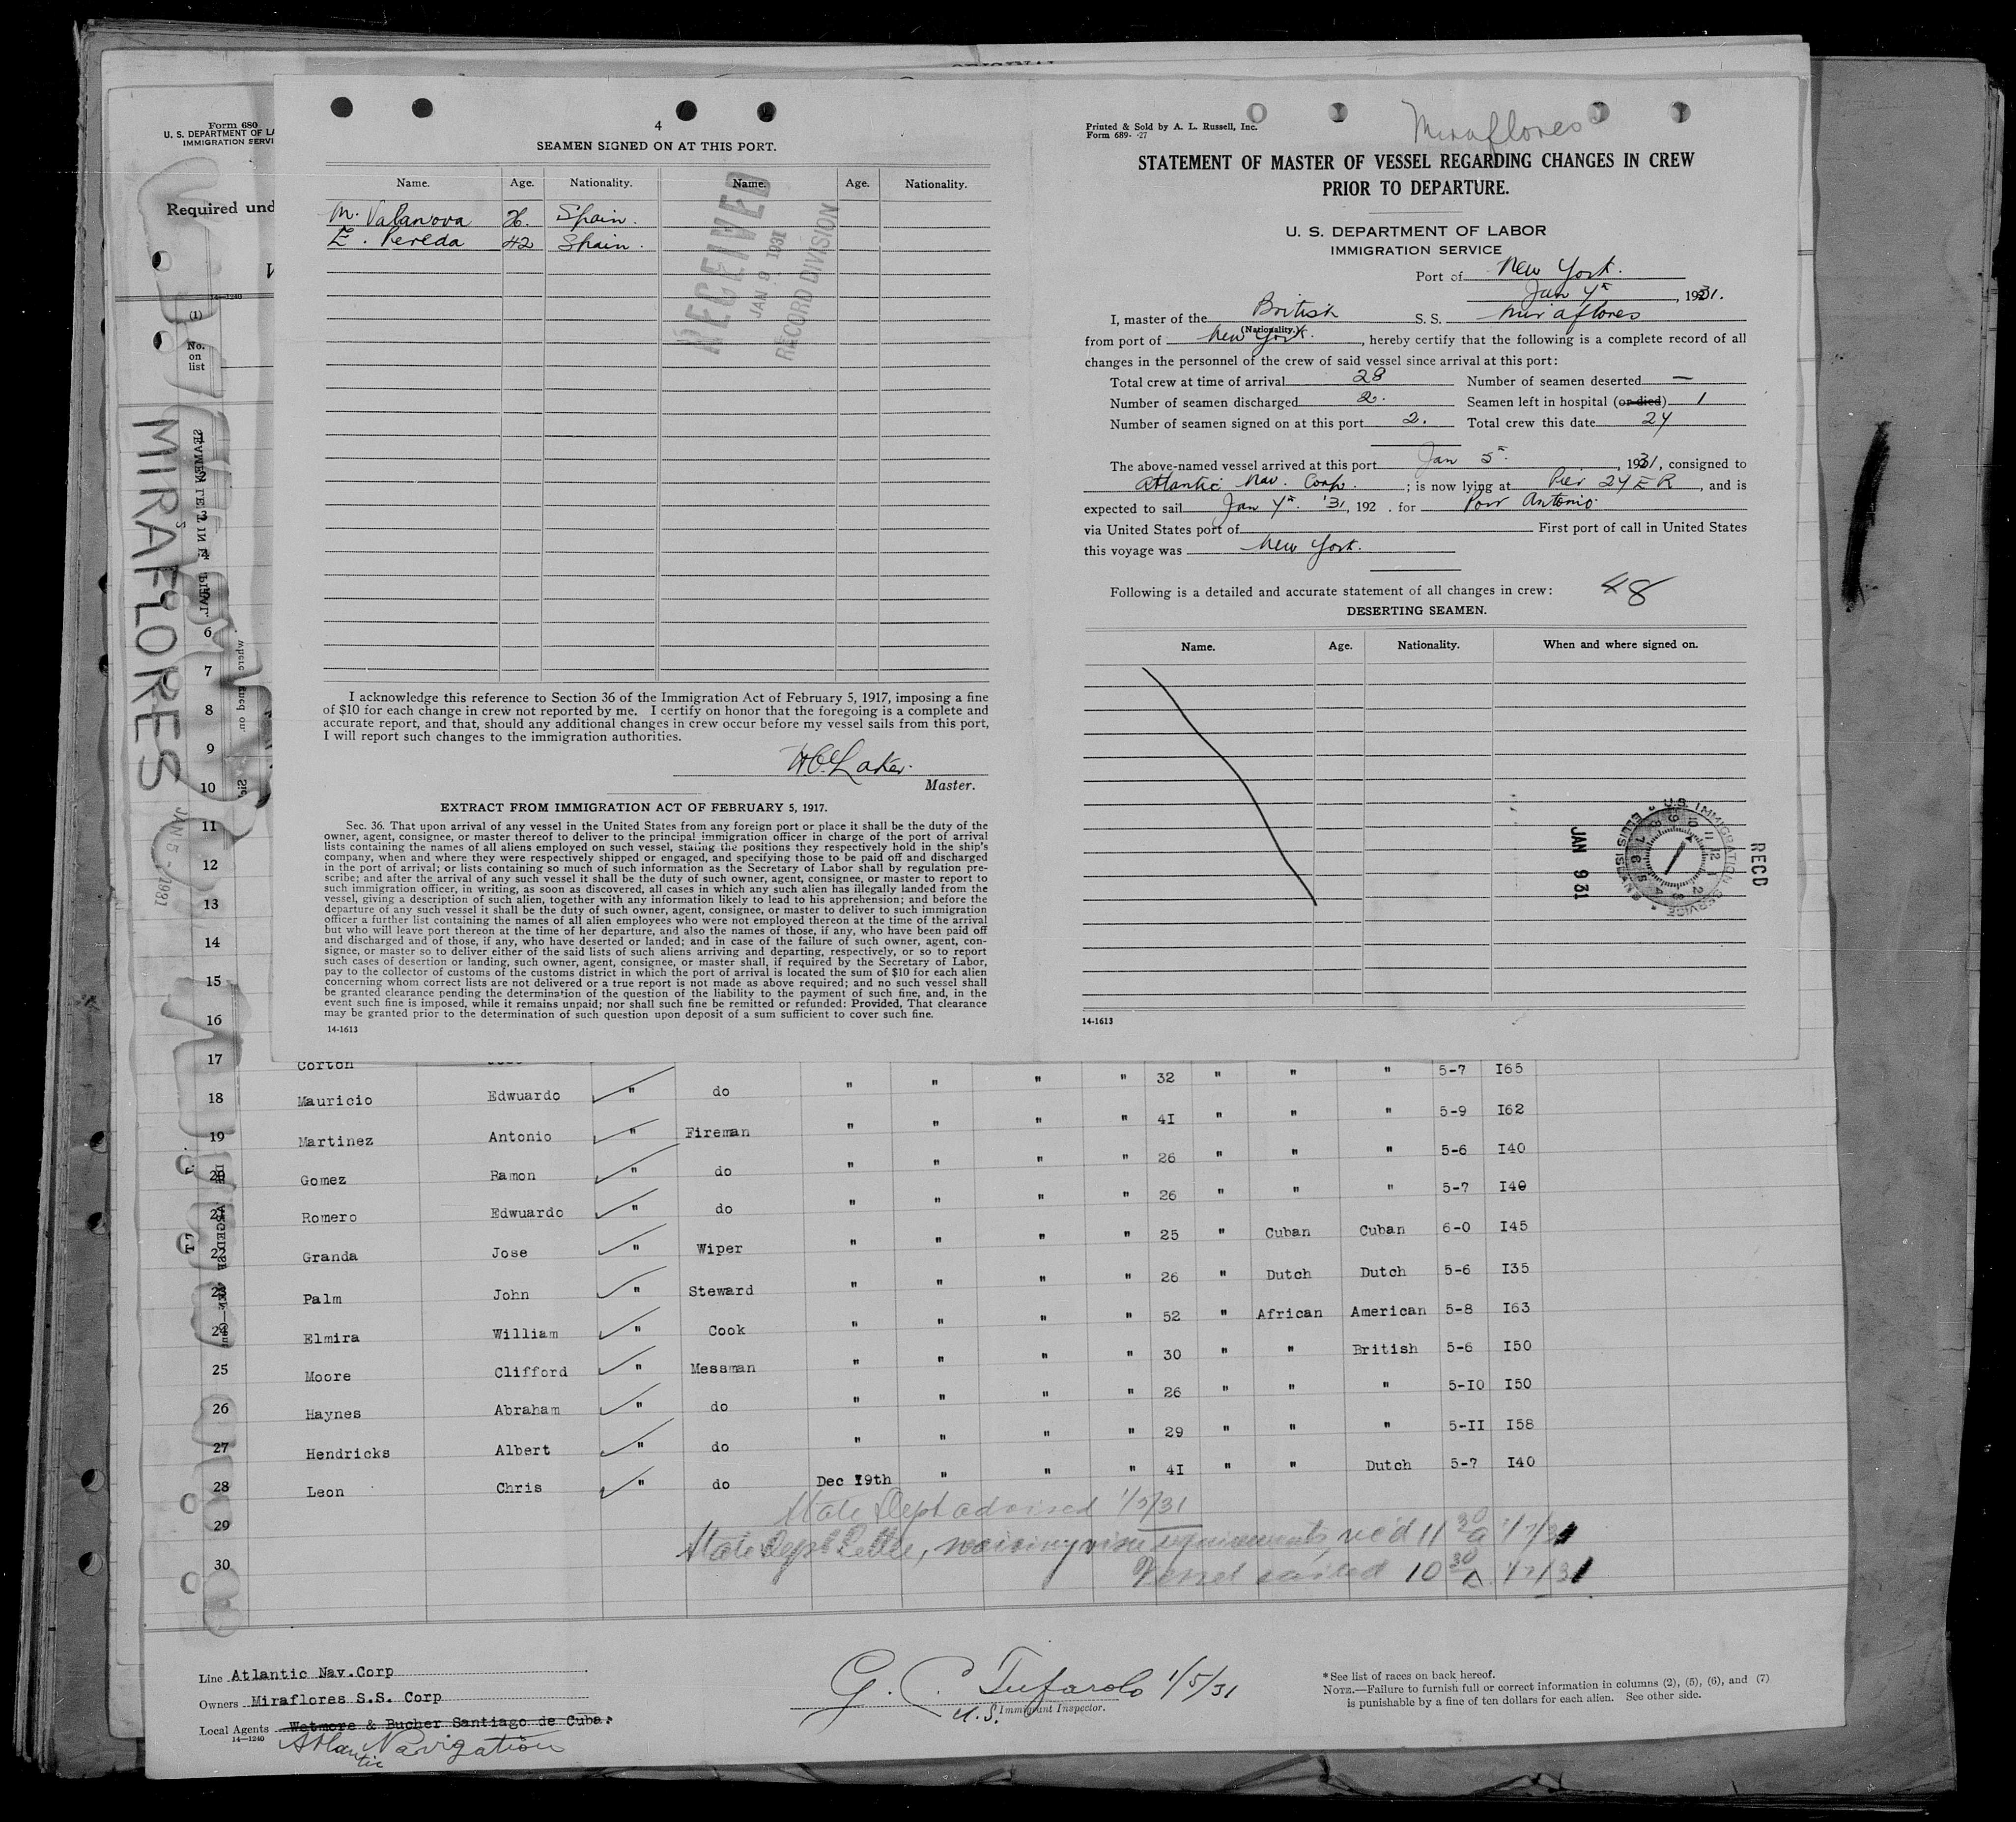 ORIGINAL
Form 680
U. S. DEPARTMENT OF LA
IMMIGRATION SERVI
Required und
14—1240
(1)
No.
on
list
MIRAFLORES
JAN 5 - 1931
4
SEAMEN SIGNED ON AT THIS PORT.
Name. Age. Nationality. Name. Age. Nationality.
M. Valanova 26. Spain.
E. Pereda 42 Spain.
RECEIVED
JAN 9 1931
RECORD DIVISION
I acknowledge this reference to Section 36 of the Immigration Act of February 5, 1917, imposing a fine
of $10 for each change in crew not reported by me. I certify on honor that the foregoing is a complete and
accurate report, and that, should any additional changes in crew occur before my vessel sails from this port,
I will report such changes to the immigration authorities.
Laker.
Master.
EXTRACT FROM IMMIGRATION ACT OF FEBRUARY 5, 1917.
Sec. 36. That upon arrival of any vessel in the United States from any foreign port or place it shall be the duty of the
owner, agent, consignee, or master thereof to deliver to the principal immigration officer in charge of the port of arrival
lists containing the names of all aliens employed on such vessel, stating the positions they respectively hold in the ship's
company, when and where they were respectively shipped or engaged, and specifying those to be paid off and discharged
in the port of arrival; or lists containing so much of such information as the Secretary of Labor shall by regulation pre-
scribe; and after the arrival of any such vessel it shall be the duty of such owner, agent, consignee, or master to report to
such immigration officer, in writing, as soon as discovered, all cases in which any such alien has illegally landed from the
vessel, giving a description of such alien, together with any information likely to lead to his apprehension; and before the
departure of any such vessel it shall be the duty of such owner, agent, consignee, or master to deliver to such immigration
officer a further list containing the names of all alien employees who were not employed thereon at the time of the arrival
but who will leave port thereon at the time of her departure, and also the names of those, if any, who have been paid off
and discharged and of those, if any, who have deserted or landed; and in case of the failure of such owner, agent, con-
signee, or master so to deliver either of the said lists of such aliens arriving and departing, respectively, or so to report
such cases of desertion or landing, such owner, agent, consignee, or master shall, if required by the Secretary of Labor,
pay to the collector of customs of the customs district in which the port of arrival is located the sum of $10 for each alien
concerning whom correct lists are not delivered or a true report is not made as above required; and no such vessel shall
be granted clearance pending the determination of the question of the liability to the payment of such fine, and, in the
event such fine is imposed, while it remains unpaid; nor shall such fine be remitted or refunded: Provided, That clearance
may be granted prior to the determination of such question upon deposit of a sum sufficient to cover such fine.
14-1613
Printed & Sold by A. L. Russell, Inc.
Form 689- -27
Miraflores
STATEMENT OF MASTER OF VESSEL REGARDING CHANGES IN CREW
PRIOR TO DEPARTURE.
U. S. DEPARTMENT OF LABOR
IMMIGRATION SERVICE
Port of New York.
Jan 7th, 1931.
I, master of the British S. S. Miraflores
(Nationality.)
from port of New York., hereby certify that the following is a complete record of all
changes in the personnel of the crew of said vessel since arrival at this port:
Total crew at time of arrival 28 Number of seamen deserted —
Number of seamen discharged 2. Seamen left in hospital (or died) 1
Number of seamen signed on at this port 2. Total crew this date 27
The above-named vessel arrived at this port Jan 5th, 1931, consigned to
Atlantic Nav. Corp.; is now lying at Pier 27 E R, and is
expected to sail Jan 7th '31, 192 . for Port Antonio.
via United States port of First port of call in United States
this voyage was New York.
Following is a detailed and accurate statement of all changes in crew: 48
DESERTING SEAMEN.
Name. Age. Nationality. When and where signed on.
U.S. IMMIGRATION SERVICE ELLIS ISL'N
JAN 9 31
RECD
14-1613
3
4
6
7
8
9
10
11
12
13
14
15
16
17 Corton 32 " " " 5-7 I65
18 Mauricio Edwuardo " do " " " " 41 " " " 5-9 I62
19 Martinez Antonio " Fireman " " " " 26 " " " 5-6 I40
20 Gomez Ramon " do " " " " 26 " " " 5-7 I40
21 Romero Edwuardo " do " " " " 25 " Cuban Cuban 6-0 I45
22 Granda Jose " Wiper " " " " 26 " Dutch Dutch 5-6 I35
23 Palm John " Steward " " " " 52 " African American 5-8 I63
24 Elmira William " Cook " " " " 30 " " British 5-6 I50
25 Moore Clifford " Messman " " " " 26 " " " 5-IO I50
26 Haynes Abraham " do " " " " 29 " " " 5-II I58
27 Hendricks Albert " do " " " " 41 " " Dutch 5-7 I40
28 Leon Chris " do Dec 19th " " "
29 State Dept advised 1/5/31
State Dept Letter, waiving visa requirements, rec'd 11 30 a 1/7/31
30 Vessel sailed 10 30 A 1/7/31
Line Atlantic Nav.Corp
Owners Miraflores S.S. Corp
Local Agents Wetmore & Bucher Santiago de Cuba.
14—1240
Atlantic Navigation
G. C. Tufarolo 1/5/31
U.S. Immigrant Inspector.
*See list of races on back hereof.
NOTE.—Failure to furnish full or correct information in columns (2), (5), (6), and (7)
is punishable by a fine of ten dollars for each alien. See other side.